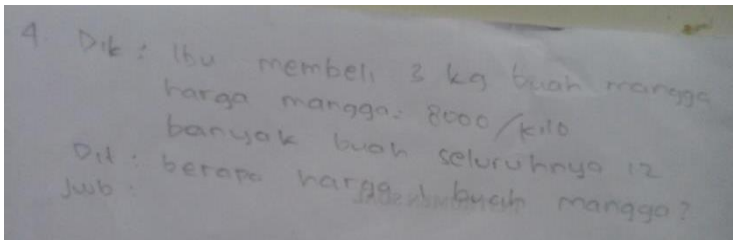 4 Dik : Ibu membeli 3 kg buah mangga
harga mangga = 8000/kilo
banyak buah seluruhnya 12
Dit : berapa harga 1 buah mangga?
Jwb :